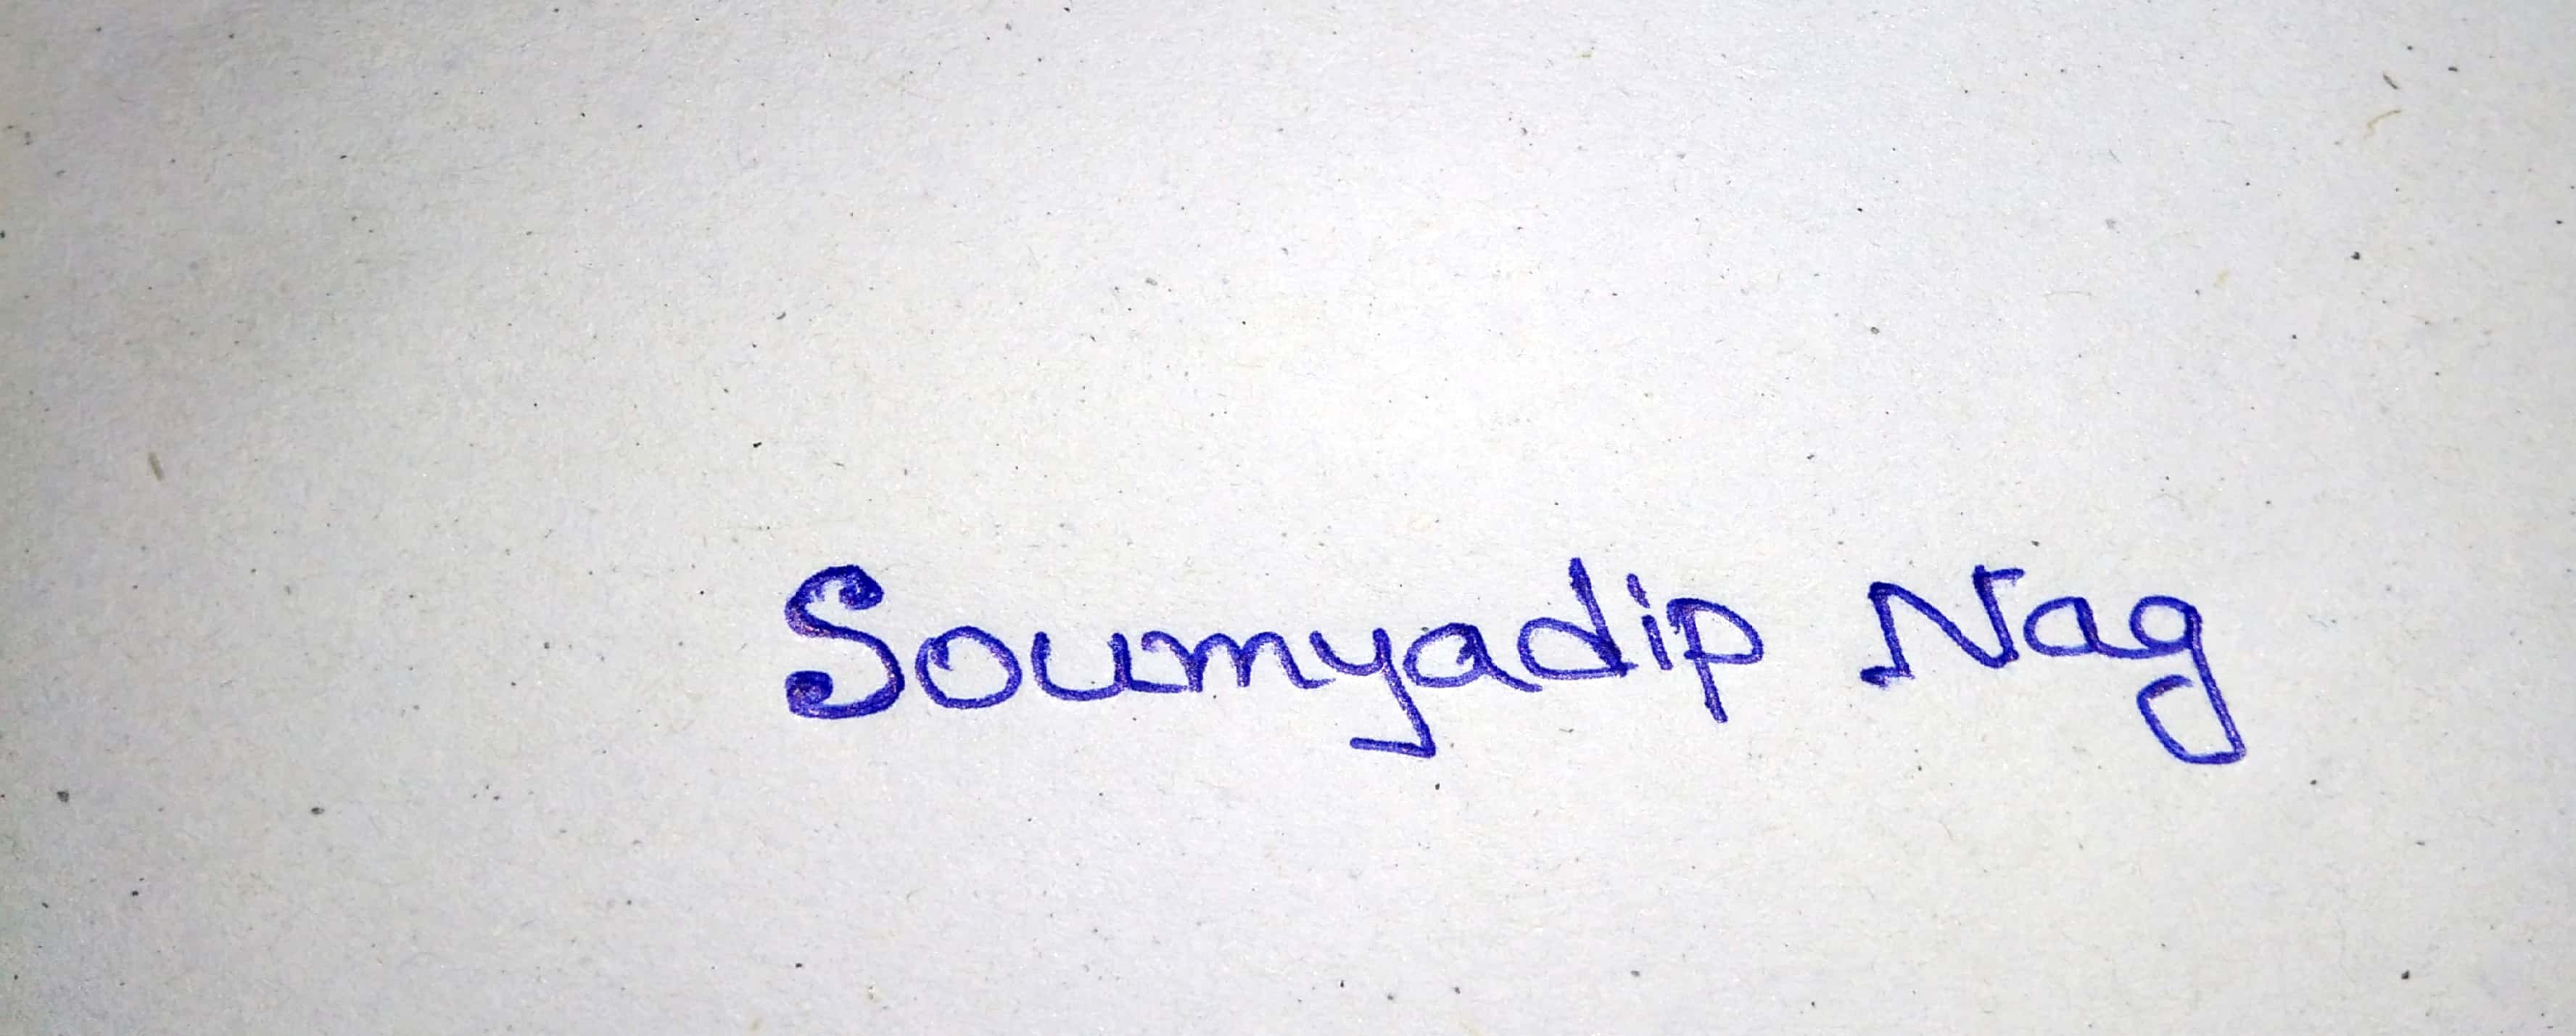 Soumyadip Nag